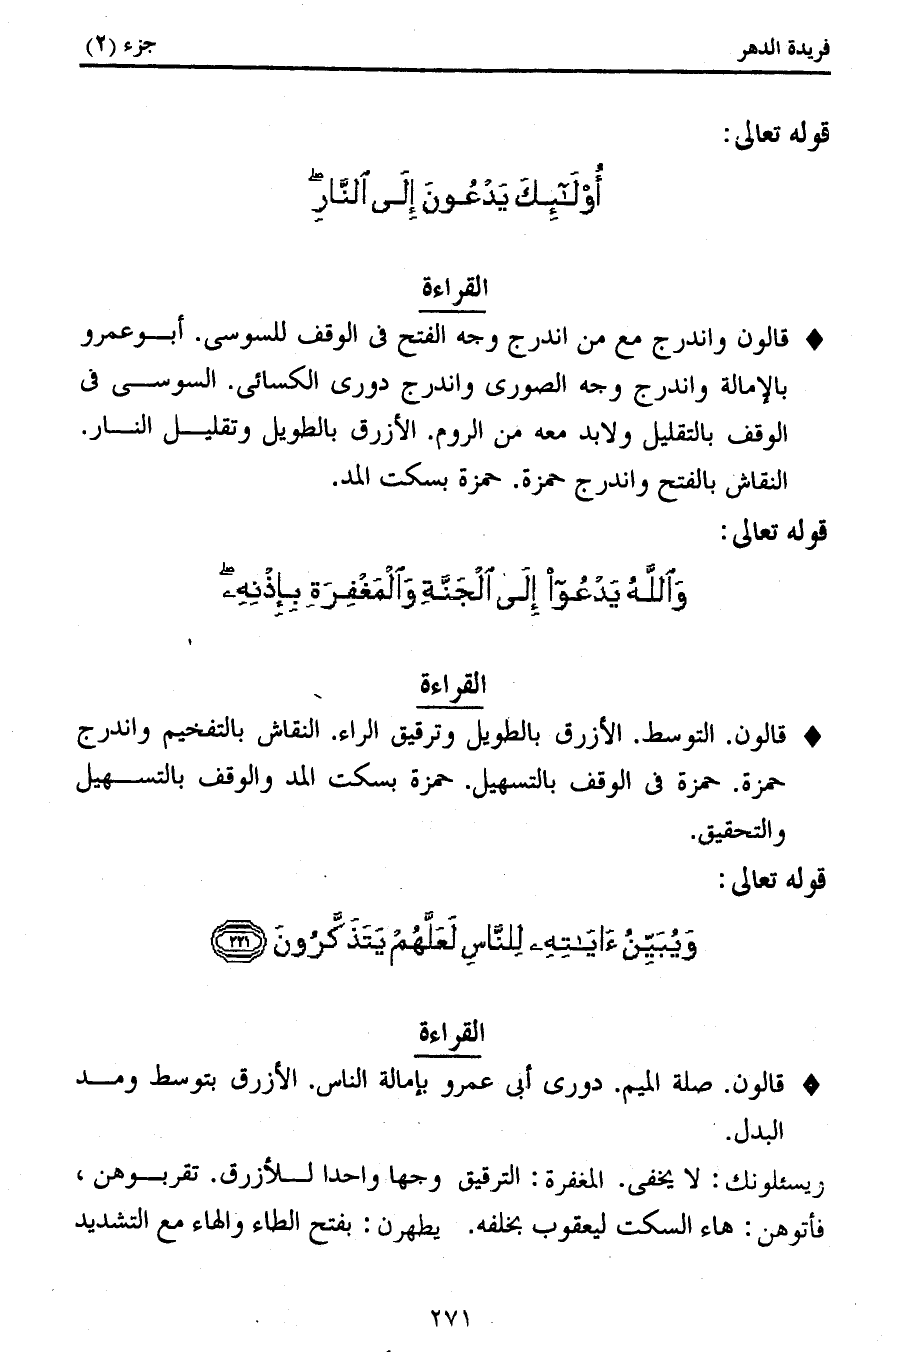 فريدة الدهر
جزء (٢)
قوله تعالى:
أُوْلَٰٓئِكَ يَدْعُونَ إِلَى ٱلنَّارِۖ
القراءة
♦ قالون واندرج مع من اندرج وجه الفتح فى الوقف للسوسى. أبـــوعمرو
بالإمالة واندرج وجه الصورى واندرج دورى الكسائى. السوســـى فى
الوقف بالتقليل ولابد معه من الروم. الأزرق بالطويل وتقليـــل النـــار.
النقاش بالفتح واندرج حمزة. حمزة بسكت المد.
قوله تعالى:
وَٱللَّهُ يَدْعُوٓاْ إِلَى ٱلْجَنَّةِ وَٱلْمَغْفِرَةِ بِإِذْنِهِۦۖ
القراءة
♦ قالون. التوسط. الأزرق بالطويل وترقيق الراء. النقاش بالتفخيم واندرج
حمزة. حمزة فى الوقف بالتسهيل. حمزة بسكت المد والوقف بالتســـهيل
والتحقيق.
قوله تعالى:
وَيُبَيِّنُ ءَايَٰتِهِۦ لِلنَّاسِ لَعَلَّهُمْ يَتَذَكَّرُونَ ٢٢١
القراءة
♦ قالون. صلة الميم. دورى أبى عمرو بإمالة الناس. الأزرق بتوسط ومـــد
البدل.
ريسئلونك: لا يخفى. المغفرة: الترقيق وجها واحدا لـــلأزرق. تقربـــوهن ،
فأتوهن: هاء السكت ليعقوب بخلفه. يطهرن: بفتح الطاء والهاء مع التشديد
٢٧١